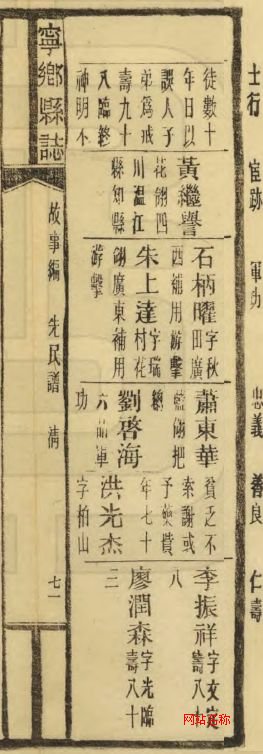 士行 宦跡 軍功 忠義 善良 仁壽
徒數十
年日以
誤人子
弟爲戒
壽九十
八臨終
神明不
黃繼譽
花翎四
川溫江
縣知縣
石柄曜字秋田廣
西補用遊擊
朱上達字瑞村花
翎廣東補用
游擊
蕭東華
藍翎把
總
劉啓海
六品軍
功
貧乏不
索謝或
予藥貲
年七十
洪光杰
字柏山
李振祥字文定壽八十
八
廖潤森字光臨壽八十
二
寧鄉縣誌
故事編 先民譜 清
七一
网站名称